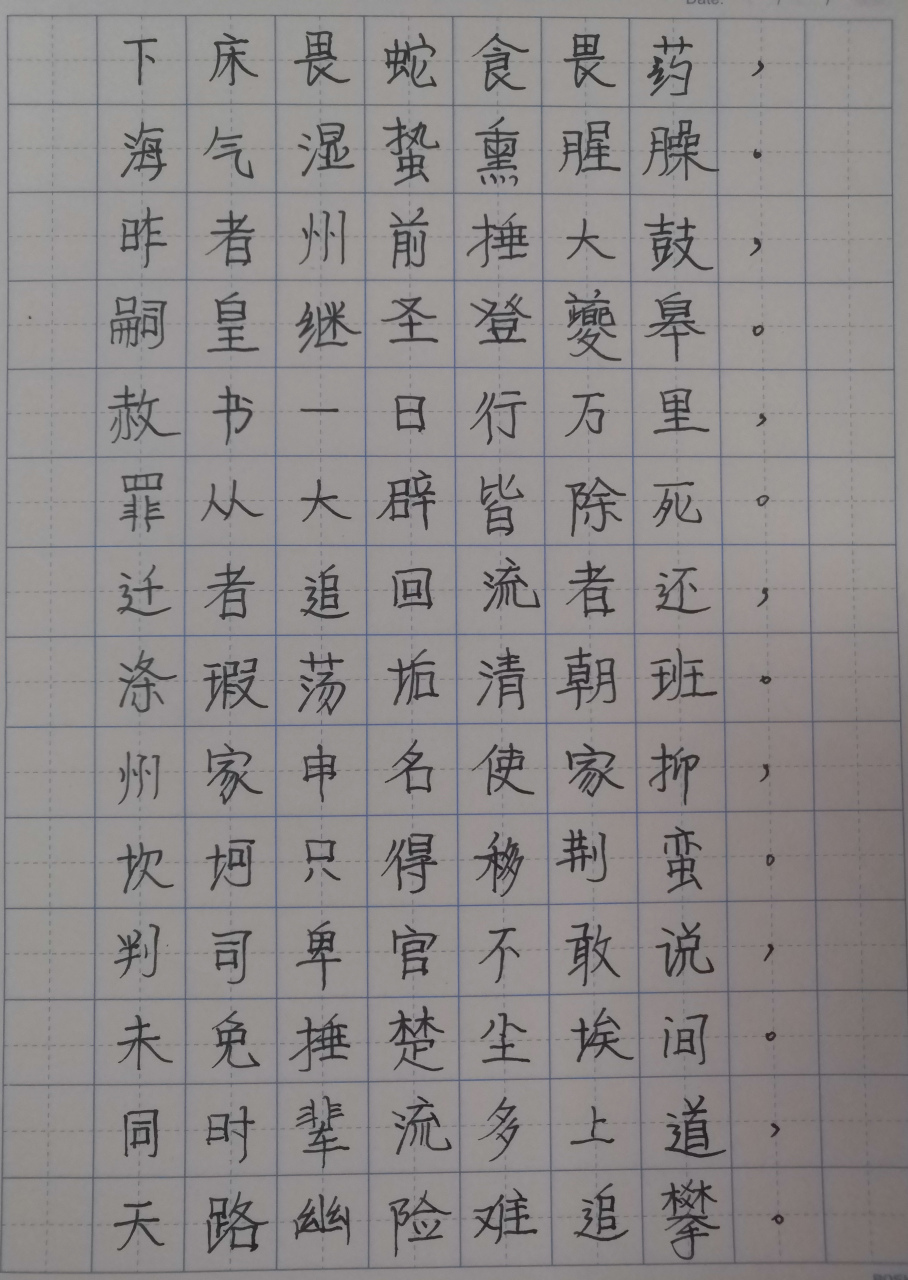 Date:
下床畏蛇食畏药，
海气湿蛰熏腥臊。
昨者州前捶大鼓，
嗣皇继圣登夔皋。
赦书一日行万里，
罪从大辟皆除死。
迁者追回流者还，
涤瑕荡垢清朝班。
州家申名使家抑，
坎坷只得移荆蛮。
判司卑官不敢说，
未免捶楚尘埃间。
同时辈流多上道，
天路幽险难追攀。